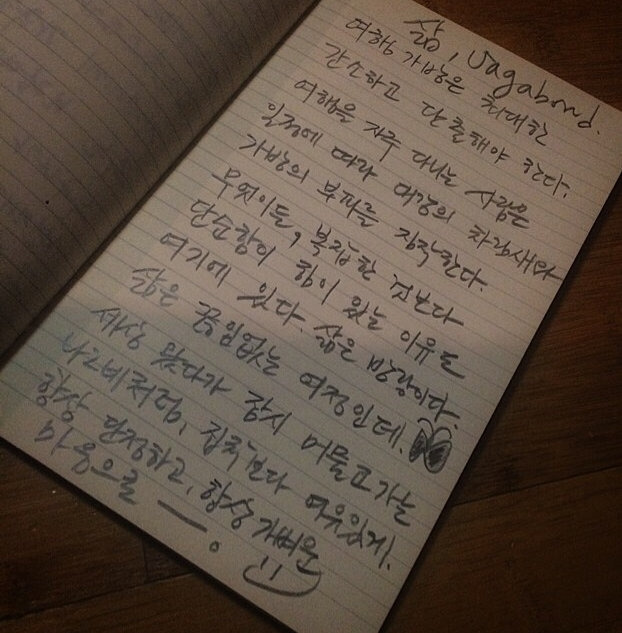 삶, Vagabond.
여행 가방은 최대한
간소하고 단출해야 한다.
여행을 자주 다니는 사람은
일정에 따라 대강의 차림새와
가방의 부피를 짐작한다.
무엇이든, 복잡한 것보다
단순함이 힘이 있는 이유도
여기에 있다. 삶은 방랑이다.
삶은 끊임없는 여정인데.
세상 왔다가 잠시 머물고 가는
나그네처럼, 집착보다 여유있게.
항상 단정하고, 항상 가벼운
마음으로 —.